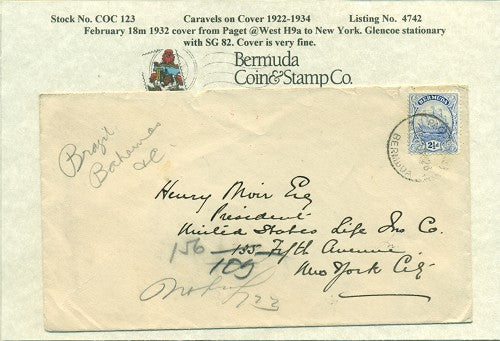 Stock No. COC 123 Caravels on Cover 1922-1934 Listing No. 4742
February 18m 1932 cover from Paget @West H9a to New York. Glencoe stationary
with SG 82. Cover is very fine.
Bermuda
Coin & Stamp Co.
BERMUDA
2½d
BERMUDA
Brazil
Bahamas
&c.
Henry Moir Esq
President
United States Life Ins Co.
156 155 Fifth Avenue
109 New York City